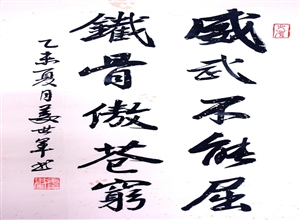 威武不能屈
鐵骨傲苍穷
乙未夏月姜世军书